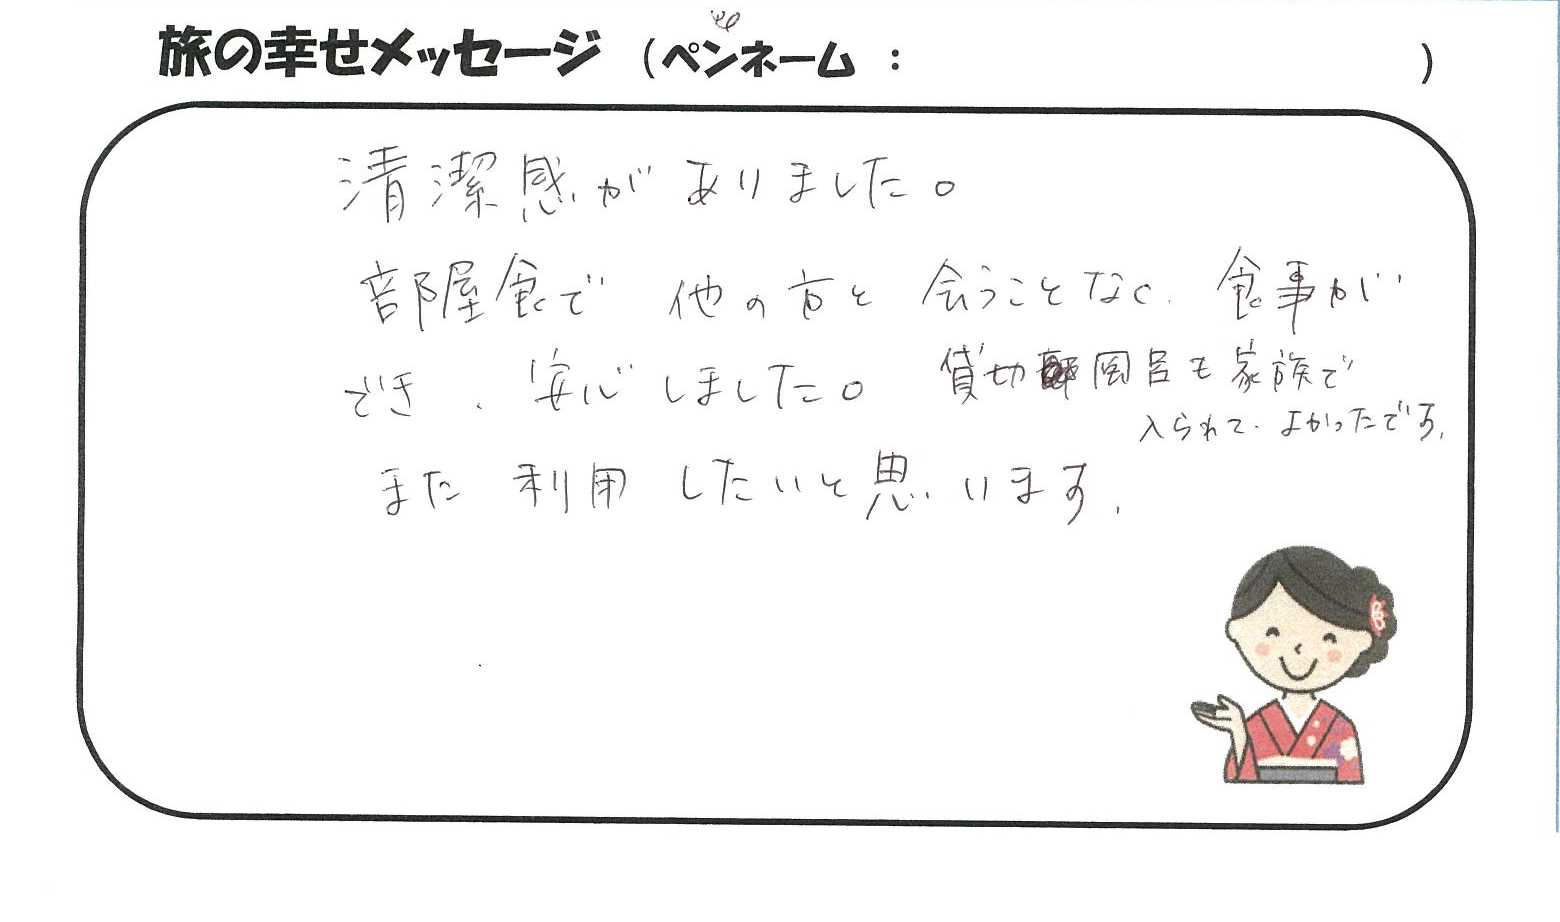 旅の幸せメッセージ (ペンネーム : )
清潔感がありました。
部屋食で 他の方と 会うことなく、食事が
でき、安心しました。 貸切風呂も家族で
入られて、よかったです。
また 利用 したいと思います。